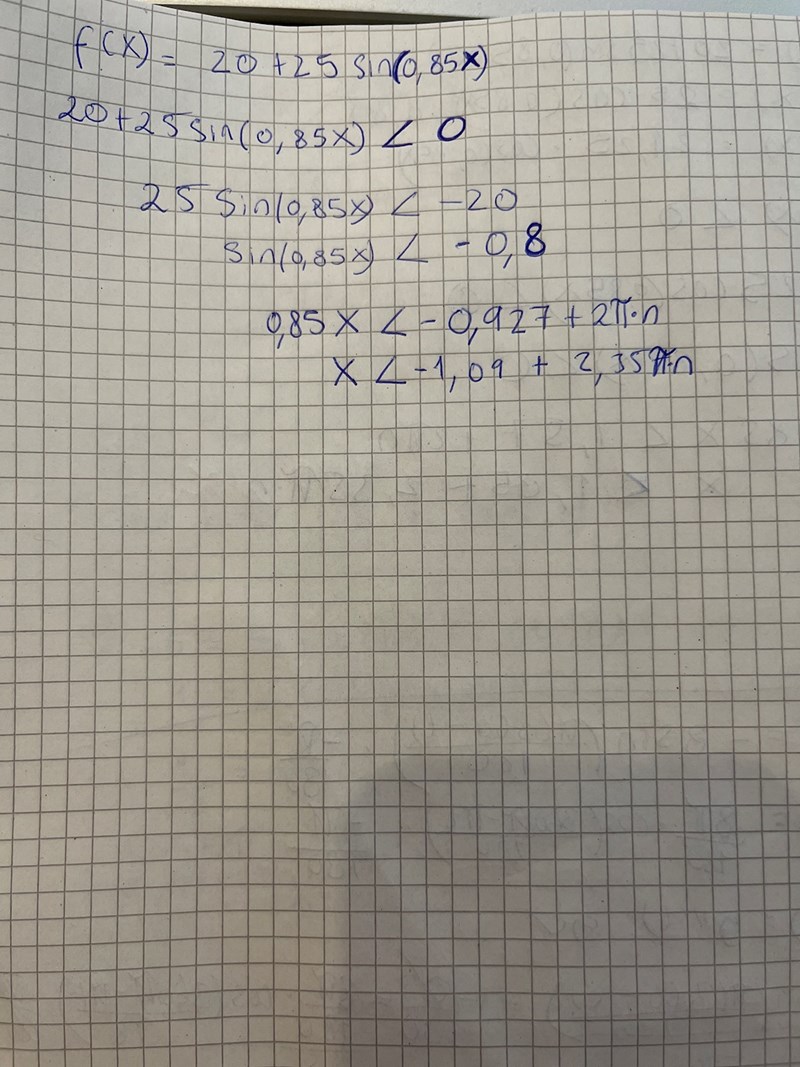 f(x) = 20+25 sin(0,85x)
20+25sin(0,85x) < 0
25 sin(0,85x) < -20
sin(0,85x) < -0,8
0,85x < -0,927 + 2π·n
x < -1,09 + 2,35π·n